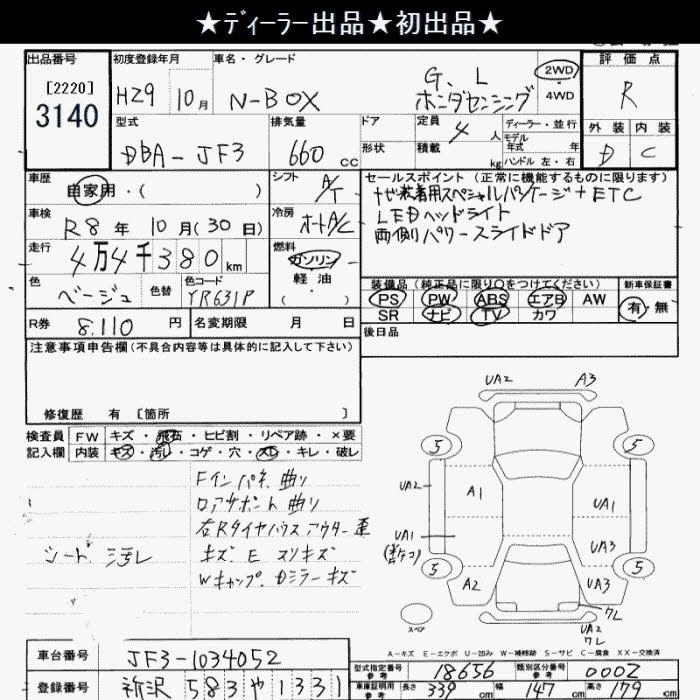 ★ディーラー出品★初出品★
出品番号
[2220]
3140
初度登録年月
H29 10月
車名・グレード
N-BOX
G、L
ホンダセンシング
2WD
4WD
評価点
R
外装 内装
D C
型式
DBA-JF3
排気量
660 cc
ドア
形状
定員
4 人
積載
kg
ディーラー・並行
モデル
年式 年
ハンドル 左・右
車歴
自家用・( )
シフト
A/T
セールスポイント (正常に機能するものに限ります)
ナビ装着用スペシャルパッケージ+ETC
LEDヘッドライト
両側パワースライドドア
車検
R8年10月(30日)
冷房
オートA/C
走行
4万4千380km
燃料
ガソリン
軽油
( )
色
ベージュ
色替
色コード
YR631P
装備品 (純正品に限り○をつけてください)
PS PW ABS エアB AW
SR ナビ TV カワ
新車保証書
有・無
R券
8.110 円
名変期限 月 日
後日品
注意事項申告欄(不具合内容等は具体的に記入して下さい)
修復歴 有 [箇所 ]
検査員
記入欄
FW キズ・飛石・ヒビ割・リペア跡・×要
内装 キズ・汚レ・コゲ・穴・スレ・キレ・破レ
シート 汚レ
Fインパネ 曲り
ロアサポート 曲り
右Rタイヤハウス アウター 歪
キズ、E スリキズ
Wキャップ、Dミラーキズ
UA2 A3
5 5
UA2
A1
UA1
UA1
UA3
5 5
A2
UA3
ワレ
スペア
UA2
ワレ
A-キズ E-エクボ U-凹み W-補修跡 S-サビ C-腐食 XX-交換済
車台番号
JF3-1034052
登録番号
新沢 583 や 1331
型式指定番号
参考
18656
類別区分番号
参考
0002
車庫証明用
参考
長さ 339 cm 幅 147 cm 高さ 179 cm